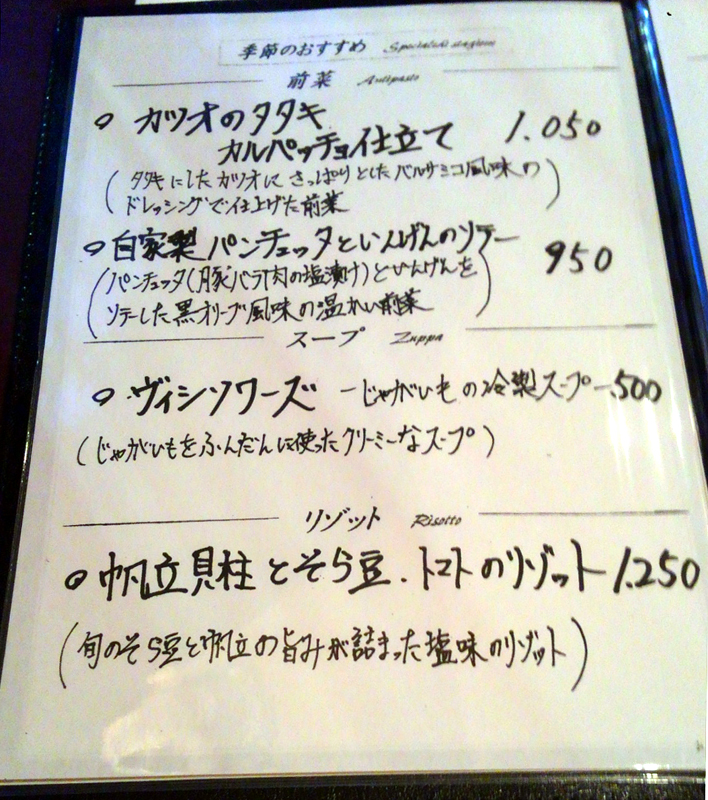 季節のおすすめ Specialità stagioni
前菜 Antipasto
カツオのタタキ
カルパッチョ仕立て 1.050
(タタキにしたカツオに さっぱりとしたバルサミコ風味の
ドレッシングで仕上げた前菜)
自家製パンチェッタといんげんのソテー 950
(パンチェッタ(豚バラ肉の塩漬け)といんげんを
ソテーした黒オリーブ風味の温かい前菜)
スープ Zuppa
ヴィシソワーズ ーじゃがいもの冷製スープー 500
(じゃがいもをふんだんに使ったクリーミーなスープ)
リゾット Risotto
帆立貝柱とそら豆.トマトのリゾット 1.250
(旬のそら豆と帆立の旨みが詰まった塩味のリゾット)